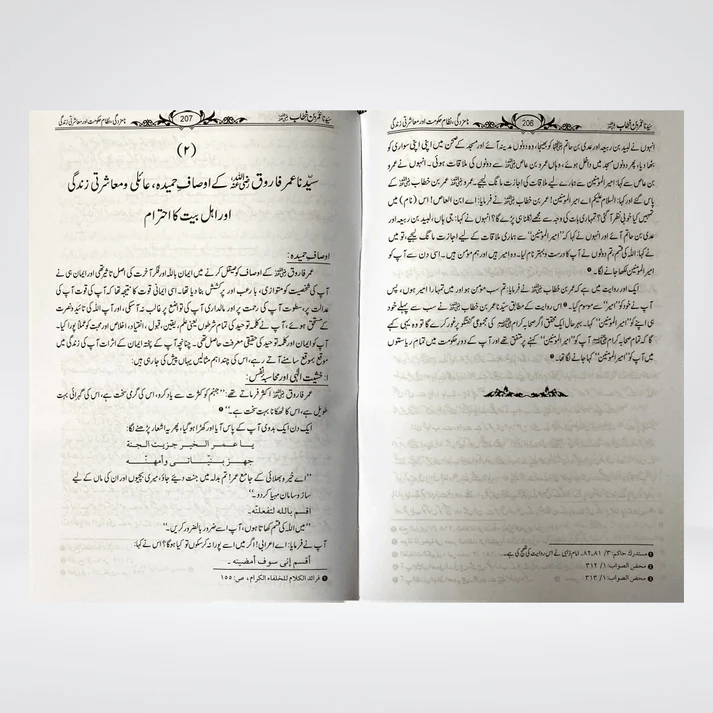 سیّدنا عمر بن خطاب رضی اللہ عنہ 206 نامزدگی، نظام حکومت اور معاشرتی زندگی
انہوں نے لبید بن ربیعہ اور عدی بن حاتم رضی اللہ عنہما کو بھیجا، وہ دونوں مدینہ آئے اور مسجد کے صحن میں اپنی اپنی سواری کو
بٹھا دیا، پھر دونوں مسجد میں داخل ہوئے، وہاں عمرو بن عاص رضی اللہ عنہ سے دونوں کی ملاقات ہوئی۔ انہوں نے عمرو
بن عاص سے کہا: امیر المومنین سے ہمارے لیے ملاقات کی اجازت مانگ لیجیے۔ عمرو رضی اللہ عنہ عمر بن خطاب رضی اللہ عنہ کے
پاس گئے اور کہا: السلام علیکم اے امیر المومنین! عمر بن خطاب رضی اللہ عنہ نے فرمایا: اے ابن العاص! اس (نام) میں
تمہیں کیا خوبی نظر آ گئی؟ تمہاری بات کی وجہ سے مجھے نکلنا ہی پڑے گا؟ انہوں نے کہا: جی ہاں، لبید بن ربیعہ اور
عدی بن حاتم آئے اور انہوں نے کہا کہ ”امیر المومنین“ سے ہماری ملاقات کے لیے اجازت مانگ لیجیے، تو میں
نے کہا: اللہ کی قسم تم دونوں نے آپ کا درست و بہتر نام لیا۔ وہ امیر ہیں اور ہم مومن ہیں۔ اسی دن سے آپ کو
امیر المومنین لکھا جانے لگا۔ ❶
ایک اور روایت میں ہے کہ عمر بن خطاب رضی اللہ عنہ نے فرمایا: تم سب مومن ہو اور میں تمہارا امیر ہوں، پس
آپ نے خود کو ”امیر“ سے موسوم کیا۔ ❷ اس روایت کے مطابق سیّدنا عمر بن خطاب رضی اللہ عنہ نے سب سے پہلے خود
ہی اپنے کو ”امیر المومنین“ کہا۔ بہرحال ایک محقق اگر صحابہ کرام رضی اللہ عنہم کی مجموعی گفتگو پر غور کرے گا تو وہ یہی کہے
گا کہ تمام صحابہ کرام رضی اللہ عنہم آپ کو ”امیر المومنین“ کہنے پر متفق تھے اور آپ کے دور حکومت میں تمام ریاستوں
میں آپ کو ”امیر المومنین“ کہا جانے لگا تھا۔ ❸
❶ مستدرک حاکم: ۳/ ۸۱، ۸۲۔ امام ذہبی نے اس روایت کی تصحیح کی ہے۔
❷ محض الصواب: ۱/ ۳۱۲
❸ محض الصواب: ۱/ ۳۱۳
سیّدنا عمر بن خطاب رضی اللہ عنہ 207 نامزدگی، نظام حکومت اور معاشرتی زندگی
(۲)
سیّدنا عمر فاروق رضی اللہ عنہ کے اوصاف حمیدہ، عائلی و معاشرتی زندگی
اور اہل بیت کا احترام
اوصاف حمیدہ:
عمر فاروق رضی اللہ عنہ کے اوصاف کو صیقل کرنے میں ایمان باللہ اور فکر آخرت کی اصل تاثیر تھی اور ایمان ہی نے
آپ کی شخصیت کو متوازی، با رعب اور پرکشش بنا دیا تھا۔ اسی ایمانی قوت کا نتیجہ تھا کہ آپ کی قوت آپ کی
عدالت پر، سطوت آپ کی رحمت پر اور مالداری آپ کی تواضع پر غالب نہ آ سکی، اور آپ اللہ کی تائید و نصرت
کے مستحق ہوئے، آپ نے کلمہ توحید کی تمام شرطوں یعنی علم، یقین، قبول، انقیاد، اخلاص اور محبت کو عملاً پورا کیا۔
آپ کو ایمان اور کلمہ توحید کی حقیقی معرفت حاصل تھی۔ چنانچہ آپ کے پختہ ایمان کے اثرات آپ کی زندگی میں
موقع بموقع سامنے آتے رہے، اس کی چند اہم مثالیں یہاں پیش کی جا رہی ہیں:
۱: خشیت الٰہی اور محاسبہ نفس:
عمر فاروق رضی اللہ عنہ اکثر فرماتے تھے: ”جہنم کو کثرت سے یاد کرو، اس کی گرمی سخت ہے، اس کی گہرائی بہت
طویل ہے، اس کا ٹھکانا بہت سخت ہے۔“ ❶
ایک دن ایک بدوی آپ کے پاس آیا اور کھڑا ہو گیا، پھر یہ اشعار پڑھنے لگا:
یا عمر الخیر جزیت الجنة
جهز بنیّاتی وأمهنّه
”اے خیر و بھلائی کے جامع عمر! تم بدلہ میں جنت دیئے جاؤ، میری بچیوں اور ان کی ماں کے لیے
ساز و سامان مہیا کر دو۔“
اقسم بالله لتفعلنّه۔
”میں اللہ کی قسم کھاتا ہوں، آپ اسے ضرور بالضرور کریں۔“
آپ نے فرمایا: اے اعرابی! اگر میں اسے پورا نہ کر سکوں تو کیا ہوگا؟ اس نے کہا:
أقسم إنی سوف أمضینه ۔
❶ فرائد الکلام للخلفاء الکرام ، ص: ۱۵۵